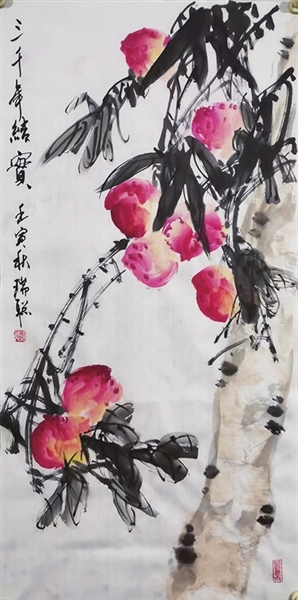 三千年结實
壬寅秋瑞聪